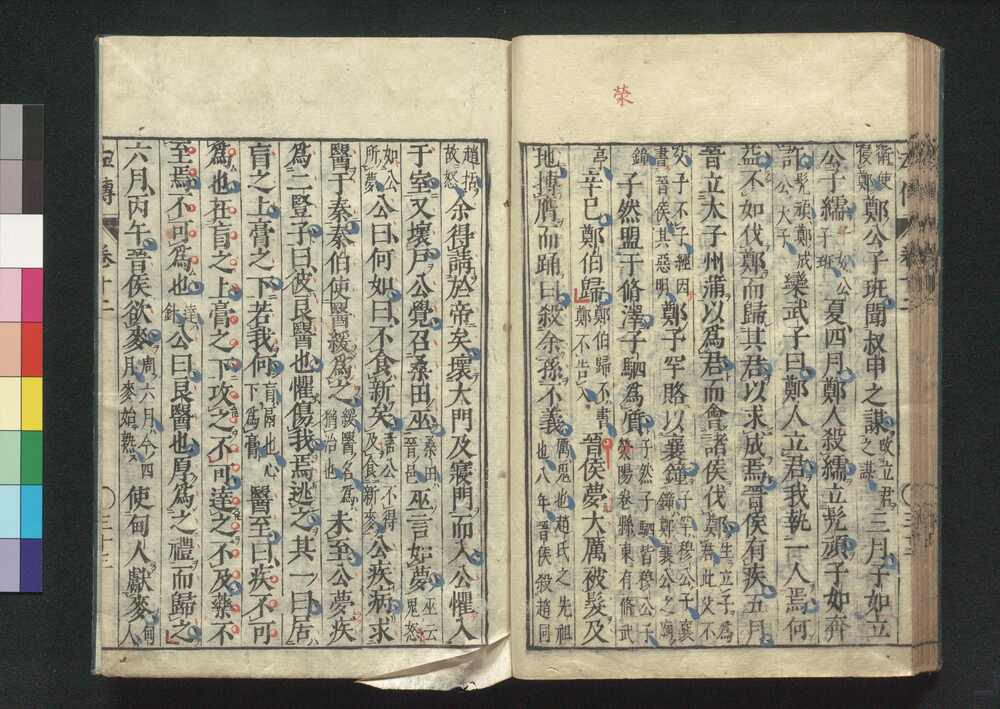 榮
衛使侵鄭鄭公子班聞叔申之謀改立君之謀三月子如立
公子繻子如公子班夏四月鄭人殺繻立髡頑子如奔
許髡頑鄭成公大子欒武子曰鄭人立君我執一人焉何
益不如伐鄭而歸其君以求成焉晉侯有疾五月
晉立太子州蒲以爲君而會諸侯伐鄭生立子爲君此父不
父子不子經因書晉侯其惡明鄭子罕賂以襄鐘子罕穆公子襄鐘鄭襄公之廟
鐘子然盟于脩澤子駟爲質子然子駟皆穆公子滎陽卷縣東有脩武
亭辛巳鄭伯歸鄭伯歸不書鄭不告入晉侯夢大厲被髮及
地搏膺而踊曰殺余孫不義厲鬼也趙氏之先祖也八年晉侯殺趙同
趙括故怒余得請於帝矣壞大門及寢門而入公懼入
于室又壞戶公覺召桑田巫桑田晉邑巫言如夢巫云鬼怒
如公所夢公曰何如曰不食新矣言公不得及食新麥公疾病求
醫于秦秦伯使醫緩爲之緩醫名爲猶治也未至公夢疾
爲二豎子曰彼良醫也懼傷我焉逃之其一曰居
肓之上膏之下若我何肓鬲也心下爲膏醫至曰疾不可
爲也在肓之上膏之下攻之不可達之不及藥不
至焉不可爲也達針公曰良醫也厚爲之禮而歸之
六月丙午晉侯欲麥周六月今四月麥始熟使甸人獻麥甸人